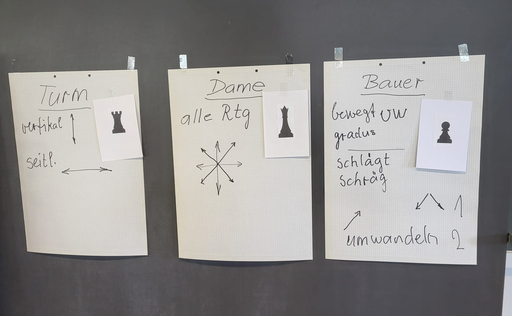 Turm
vertikal
seitl.
Dame
alle Rtg
Bauer
bewegt vw
gradus
schlägt
schräg
1
umwandeln 2